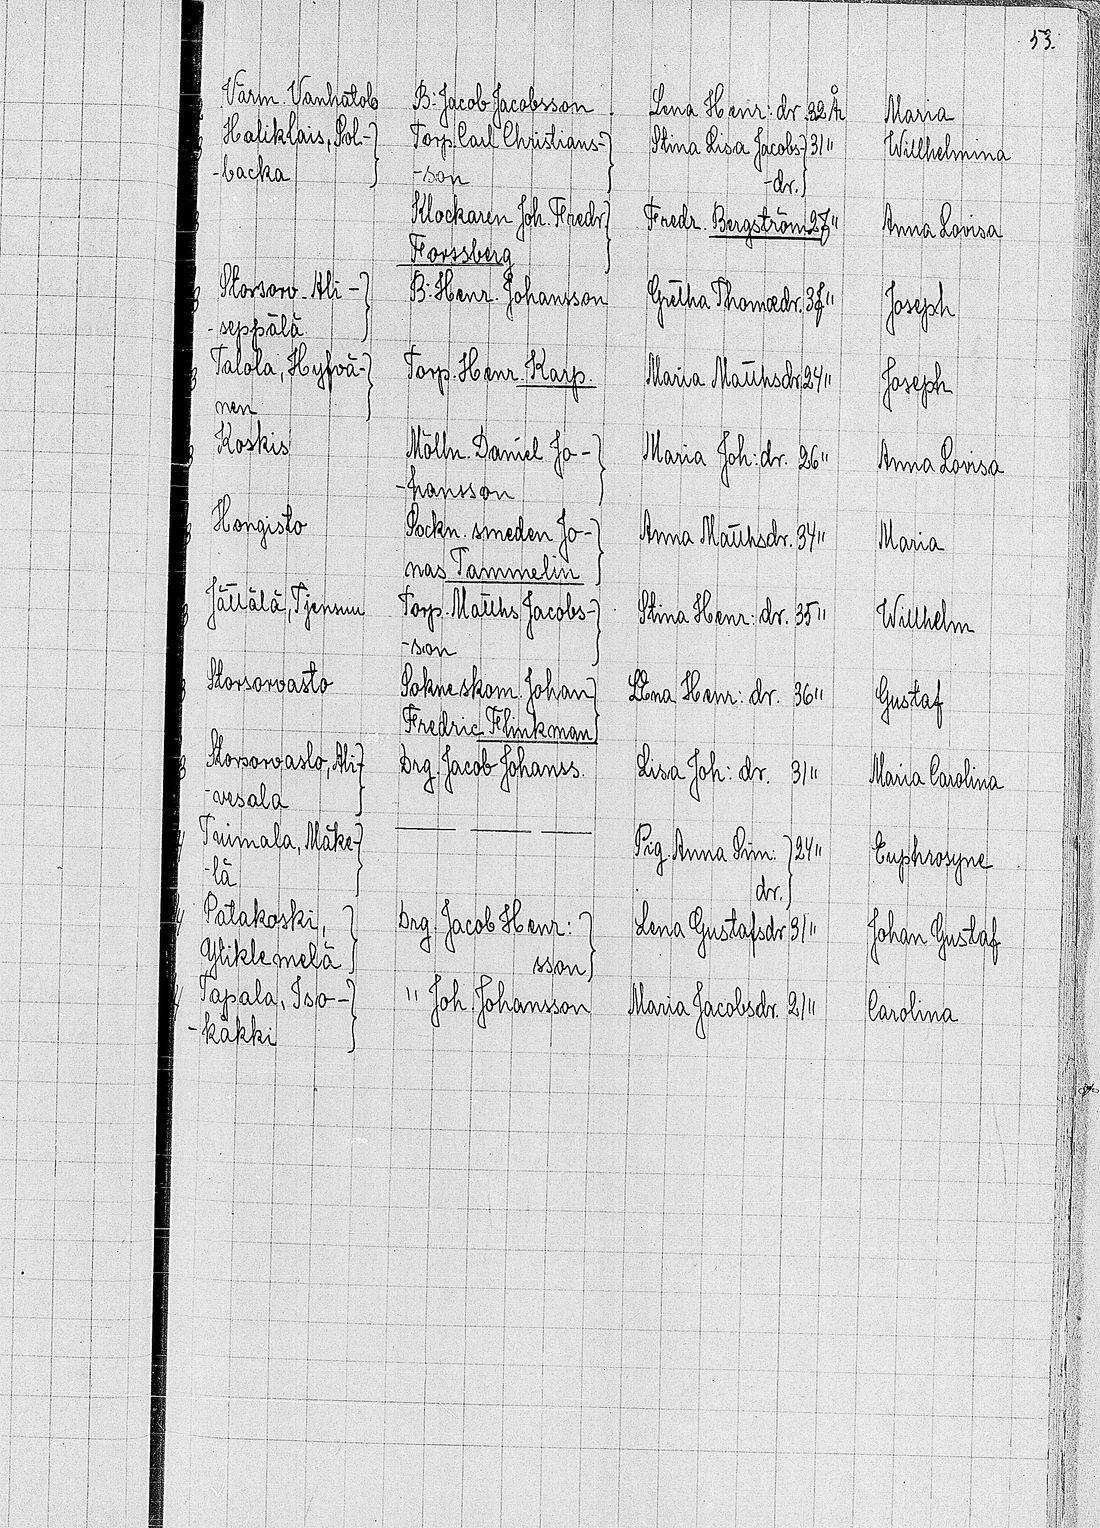 53.
Värm. Vanhatob B: Jacob Jacobsson Lena Henr: dr. 32 År Maria
Haliklais, Sol- Torp. Carl Christians- Stina Lisa Jacobs- 31" Willhelmina
-backa -son -dr.
Klockaren Joh. Fredr. Fredr. Bergström 27" Anna Lovisa
Forssberg
Storsorv. Ali- B: Henr. Johansson Gretha Thomædr. 37" Joseph
-seppälä
Talola, Hyfvä- Torp. Henr. Karp. Maria Matthsdr. 24" Joseph
nen
Koskis Mölln. Daniel Jo- Maria Joh: dr. 26" Anna Lovisa
-hansson
Hongisto Sockn. smeden Jo- Anna Matthsdr. 34" Maria
nas Tammelin
Jättälä, Tjensuu Torp. Matths Jacobs- Stina Henr: dr. 35" Willhelm
-son
Storsorvasto Sokneskom. Johan Lena Henr: dr. 36" Gustaf
Fredric Flinkman
Storsorvasto, Ali- Drg. Jacob Johanss. Lisa Joh: dr. 31" Maria Carolina
-vesala
Tuimala, Mäke- — — — Pig. Anna Sim: 24" Euphrosyne
-lä dr.
Patakoski, Drg. Jacob Henr: Lena Gustafsdr. 31" Johan Gustaf
Yliklemelä sson
Tapala, Iso- " Joh. Johansson Maria Jacobsdr. 21" Carolina
-käkki